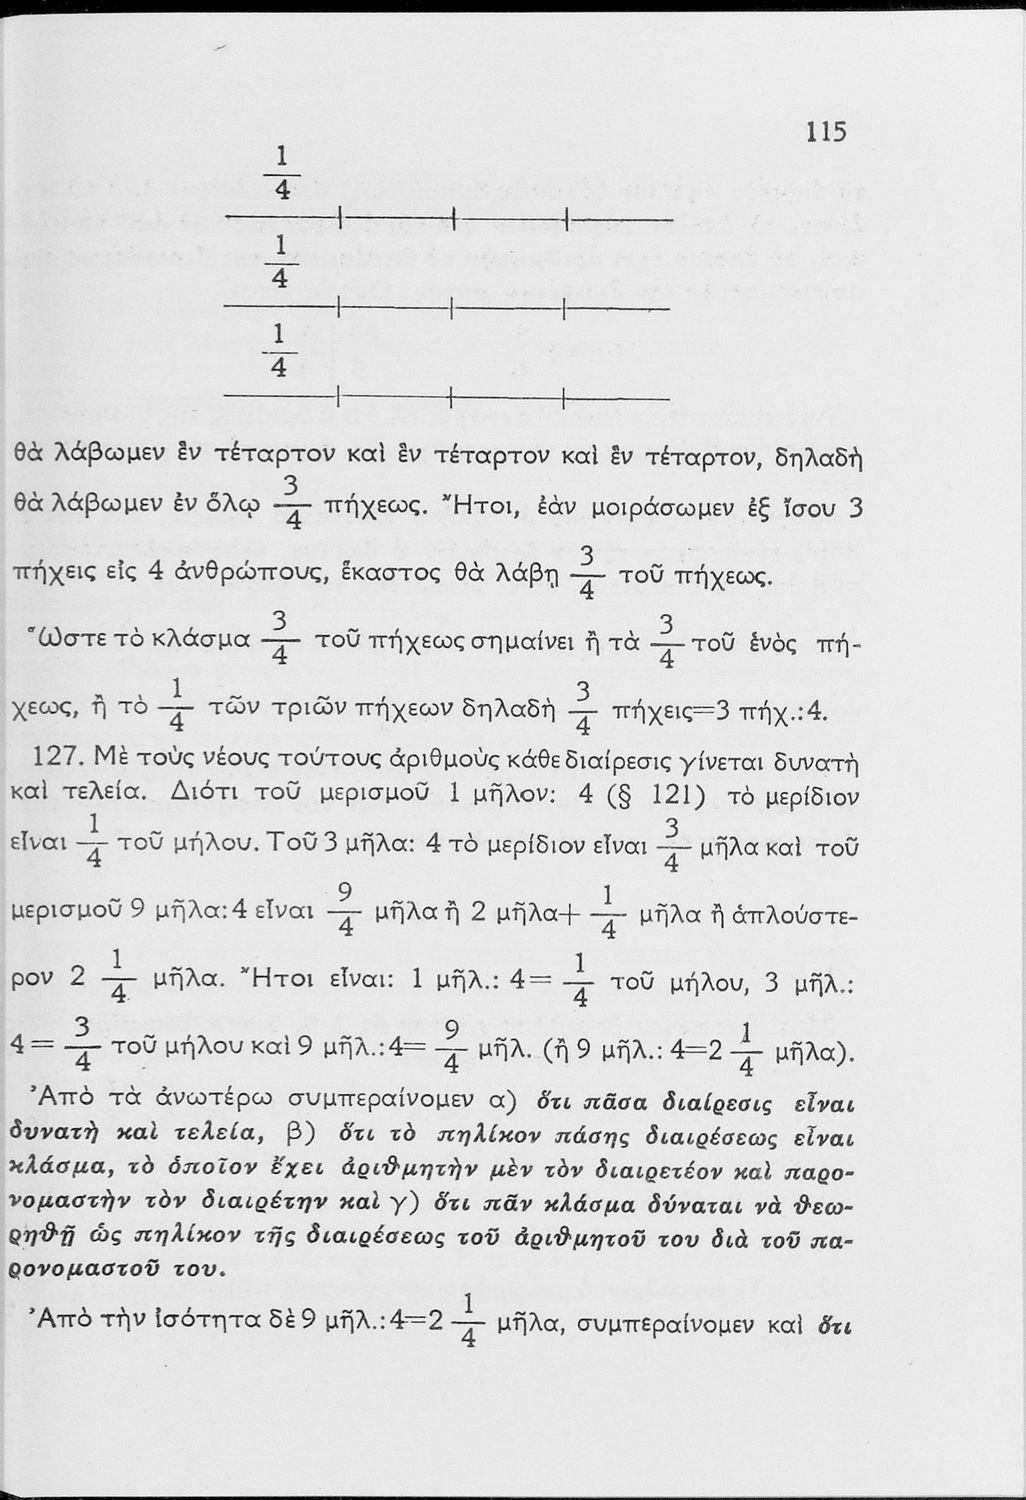 115
1/4
1/4
1/4
θὰ λάβωμεν ἓν τέταρτον καὶ ἓν τέταρτον καὶ ἓν τέταρτον, δηλαδὴ
θὰ λάβωμεν ἐν ὅλῳ 3/4 πήχεως. Ἤτοι, ἐὰν μοιράσωμεν ἐξ ἴσου 3
πήχεις εἰς 4 ἀνθρώπους, ἕκαστος θὰ λάβῃ 3/4 τοῦ πήχεως.
Ὥστε τὸ κλάσμα 3/4 τοῦ πήχεως σημαίνει ἢ τὰ 3/4 τοῦ ἑνὸς πή-
χεως, ἢ τὸ 1/4 τῶν τριῶν πήχεων δηλαδὴ 3/4 πήχεις=3 πήχ.:4.
127. Μὲ τοὺς νέους τούτους ἀριθμοὺς κάθε διαίρεσις γίνεται δυνατὴ
καὶ τελεία. Διότι τοῦ μερισμοῦ 1 μῆλον: 4 (§ 121) τὸ μερίδιον
εἶναι 1/4 τοῦ μήλου. Τοῦ 3 μῆλα: 4 τὸ μερίδιον εἶναι 3/4 μῆλα καὶ τοῦ
μερισμοῦ 9 μῆλα:4 εἶναι 9/4 μῆλα ἢ 2 μῆλα+ 1/4 μῆλα ἢ ἁπλούστε-
ρον 2 1/4 μῆλα. Ἤτοι εἶναι: 1 μῆλ.: 4= 1/4 τοῦ μήλου, 3 μῆλ.:
4= 3/4 τοῦ μήλου καὶ 9 μῆλ.:4= 9/4 μῆλ. (ἢ 9 μῆλ.: 4=2 1/4 μῆλα).
Ἀπὸ τὰ ἀνωτέρω συμπεραίνομεν α) ὅτι πᾶσα διαίρεσις εἶναι
δυνατὴ καὶ τελεία, β) ὅτι τὸ πηλίκον πάσης διαιρέσεως εἶναι
κλάσμα, τὸ ὁποῖον ἔχει ἀριθμητὴν μὲν τὸν διαιρετέον καὶ παρο-
νομαστὴν τὸν διαιρέτην καὶ γ) ὅτι πᾶν κλάσμα δύναται νὰ θεω-
ρηθῇ ὡς πηλίκον τῆς διαιρέσεως τοῦ ἀριθμητοῦ του διὰ τοῦ πα-
ρονομαστοῦ του.
Ἀπὸ τὴν ἰσότητα δὲ 9 μῆλ.:4=2 1/4 μῆλα, συμπεραίνομεν καὶ ὅτι